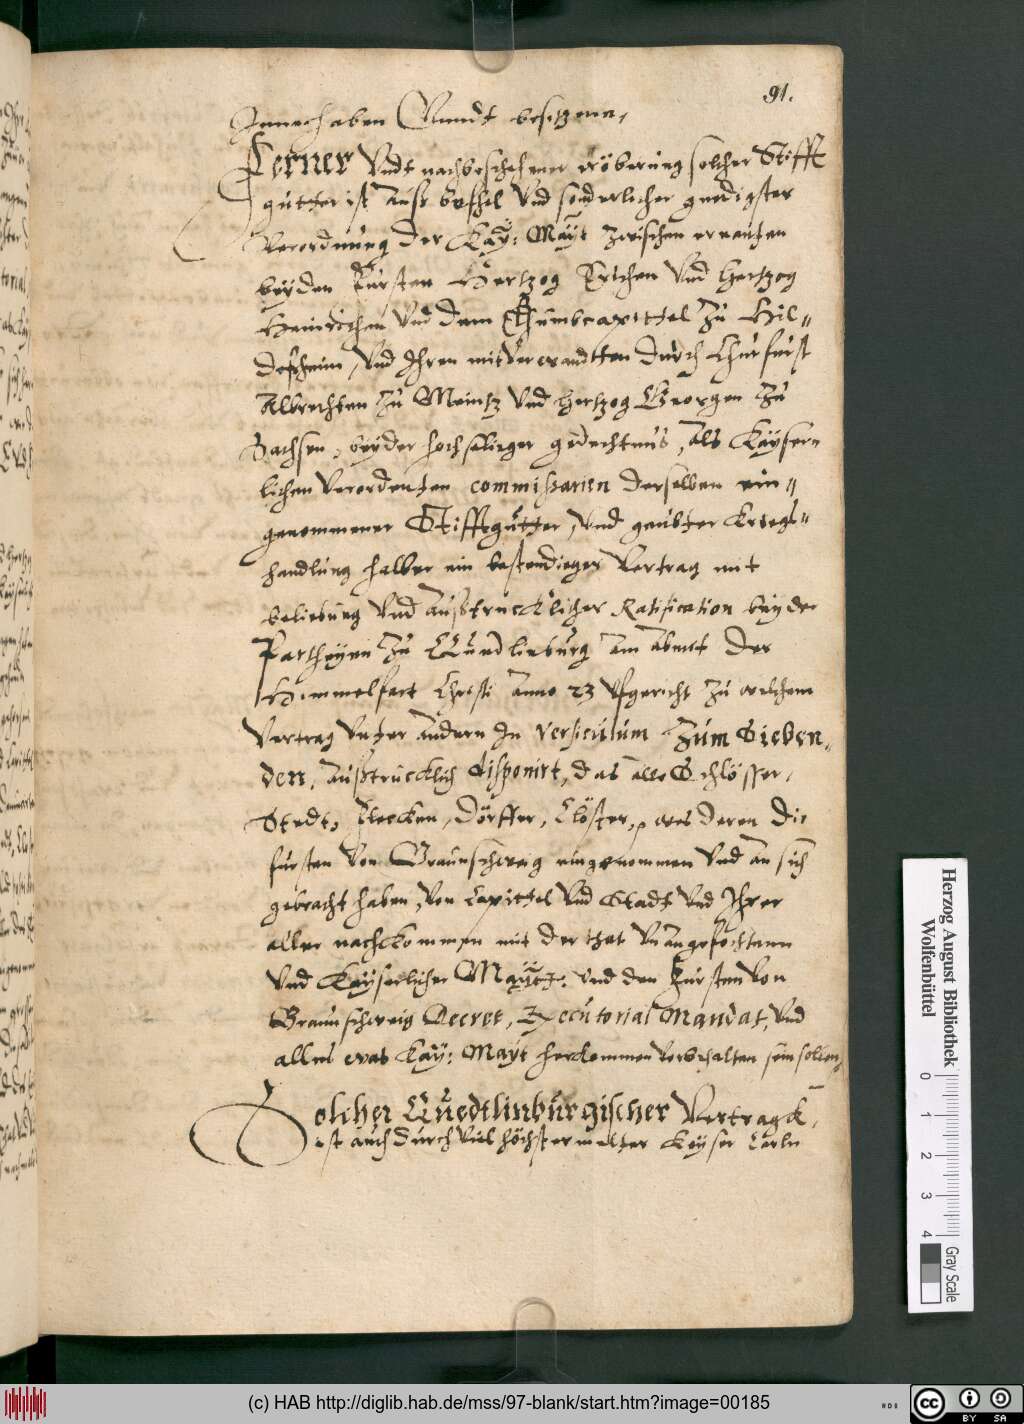 91.
Innehaben Vnndt besitzenn,
Ferner Vndt nachbeschehener eröberung solcher Stifft
gütter ist Auß befhel Vnd sonderlicher gnedigster
Verordnung der Kay: Mayt zwischen ernanten
beyden Fursten Hertzog Erichen Vnd Hertzog
Heinrichen Vnd dem Thumbcapittel Zu Hil-
desheim, Vnd Ihren mitVerwandtten durch Churfürst
Albrechten Zu Meintz Vnd Hertzog Georgen Zu
Sachsen, beyder hochseliger gedechtnus, Als Kaysern
lichen Verordenten commissarien derselben ein-
genommener Stifftgütter, Vnd geubter Kriegs-
handlung halber ein bestendieger Vertrag mit
beliebung Vnd Außtrucklicher Ratification beyder
Partheyen Zu Quedlinburg am Abent der
Himmelfart Christi Anno 23 Vfgericht Zu welchem
Vertrag Vnter Andern In Versiculum Zum Sieben-
den, Außtrucklich disponirt, das alle Schlösser,
Stedt, Flecken, Dörffer, Clöster, wes deren die
fürsten Von Braunschweig eingenommen Vnd an sich
gebracht haben, Von Capittel Vnd Stadt Vnd Ihrer
aller nachkommen mit der that Vnangefochtenn
Vnd Kayserlicher Maytt: Vnd den Fürsten Von
Braunschweig Decret, Executorial Mandat, Vnd
alles was Kay: Mayt herkommen Vorbehalten sein sollen,
Solcher Quedtlinburgischer Vertragk,
ist auch durch Viel höchstermelter Keyser Carln
Herzog August Bibliothek
Wolfenbüttel
0 1 2 3 4
Gray Scale
(c) HAB http://diglib.hab.de/mss/97-blank/start.htm?image=00185
cc BY SA